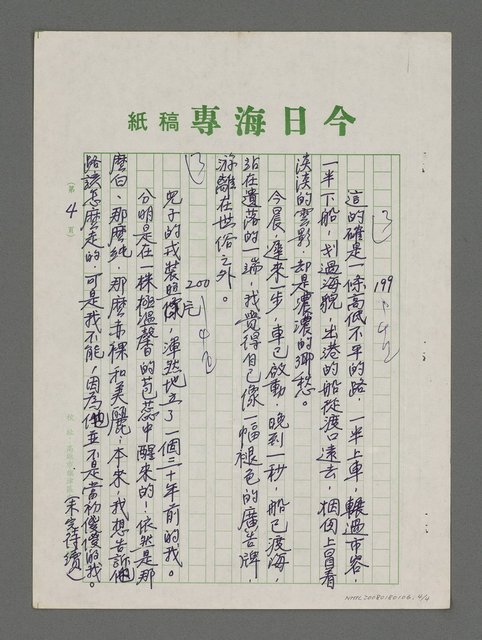 今日海專 稿紙
3/ 199
這的確是一條高低不平的路，一半上車，輾過市容，
一半下船，划過海貌，出港的船從渡口遠去，烟囱上冒着
淡淡的雲影，却是濃濃的鄉愁。
今晨，遲來一步，車已啟動，晚到一秒，船已渡海，
站在遺落的一端，我覺得自己像一幅褪色的廣告牌，
游離在世俗之外。
3/ 200
兒子的戎裝照像，渾然地立了一個三十年前的我。
分明是在一株極溫馨的苞蕊中醒來的！依然是那
麼白、那麼純、那麼赤裸和美麗，本來，我想告訴他
路該怎麼走的，可是我不能，因為他並不是當初傻傻的我。
（未完待續）
（第 4 頁）
NMTL20080180106, 4/4